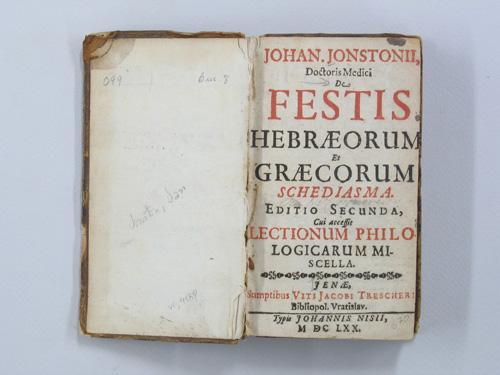 099
JOHAN. JONSTONII,
Doctoris Medici
De
FESTIS
HEBRÆORUM
Et
GRÆCORUM
SCHEDIASMA.
EDITIO SECUNDA,
Cui accessit
LECTIONUM PHILO
LOGICARUM MI-
SCELLA.
JENÆ,
Sumptibus VITI JACOBI TRESCHERI
Bibliopol. Vratislav.
Typis JOHANNIS NISII,
M DC LXX.